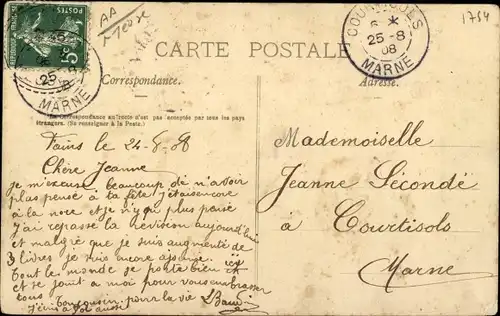 AA
1754
CARTE POSTALE
COURTISOLS
6 *
25-8
08
MARNE
POSTES
5c
25
MARNE
Correspondance.
Adresse.
La Correspondance au recto n'est pas acceptée par tous les pays
étrangers. (Se renseigner à la Poste.)
Fains le 24-8-08
Chère Jeanne
je m'excuse beaucoup de n'avoir
plus pensé à ta fête j'étais encore
à la noce et je n'y ai plus pensé
J'ai repassé la révision aujourd'hui
et malgré que je suis augmenté de
3 livres je suis encore ajourné.
Tout le monde se porte bien ici
et se joint à moi pour vous embrasser
tous. Ton cousin pour la vie
J'écris à aussi
Mademoiselle
Jeanne Sécondé
à Courtisols
Marne